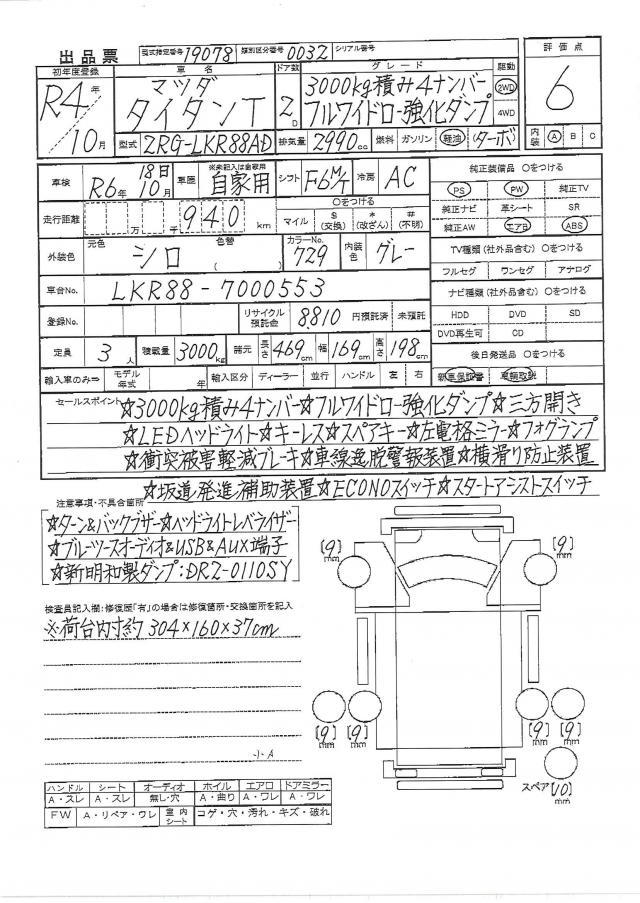 出品票 型式指定番号 19078 類別区分番号 0032 シリアル番号
初年度登録 車名 ドア数 グレード 駆動 評価点
R4年 / 10月 マツダ タイタンT 2D 3000kg積み4ナンバー 2WD 6
フルワイドロー強化ダンプ 4WD
型式 2RG-LKR88AD 排気量 2990cc 燃料 ガソリン 軽油 ターボ 内装 A B C
車検 R6年 10月 18日 車歴 ※未記入は自家用 自家用 シフト F6M/T 冷房 AC 純正装備品 〇をつける
PS PW 純正TV
走行距離 万 千 940 km 〇をつける マイル $(交換) *(改ざん) #(不明) 純正ナビ 革シート SR
純正AW エアB ABS
外装色 元色 シロ 色替 ( ) カラーNo. 729 内装色 グレー TV種類(社外品含む) 〇をつける
フルセグ ワンセグ アナログ
車台No. LKR88-7000553 ナビ種類(社外品含む) 〇をつける
登録No. リサイクル預託金 8,810 円預託済 未預託 HDD DVD SD
DVD再生可 CD
定員 3人 積載量 3000kg 諸元 長さ 469cm 幅 169cm 高さ 198cm 後日発送品 〇をつける
輸入車のみ⇒ モデル年式 年 輸入区分 ディーラー 並行 ハンドル 左 右 新車保証書 車輌取説
セールスポイント ☆3000kg積み4ナンバー☆フルワイドロー強化ダンプ☆三方開き
☆LEDヘッドライト☆キーレス☆スペアキー☆左電格ミラー☆フォグランプ
☆衝突被害軽減ブレーキ☆車線逸脱警報装置☆横滑り防止装置
☆坂道発進補助装置☆ECONOスイッチ☆スタートアシストスイッチ
注意事項・不具合箇所
☆ターン&バックブザー☆ヘッドライトレベライザー
☆ブルーツースオーディオ&USB&AUX端子
☆新明和製ダンプ:DR2-0110SY
[9]mm [9]mm
検査員記入欄:修復歴「有」の場合は修復箇所・交換箇所を記入
※荷台内寸約304×160×37cm
[9]mm [9]mm [9]mm [9]mm
小A
スペア [10]mm
ハンドル シート オーディオ ホイル エアロ ドアミラー
A・スレ A・スレ 無し・穴 A・曲り A・ワレ A・ワレ
FW A・リペア・ワレ 室内シート コゲ・穴・汚れ・キズ・破れ